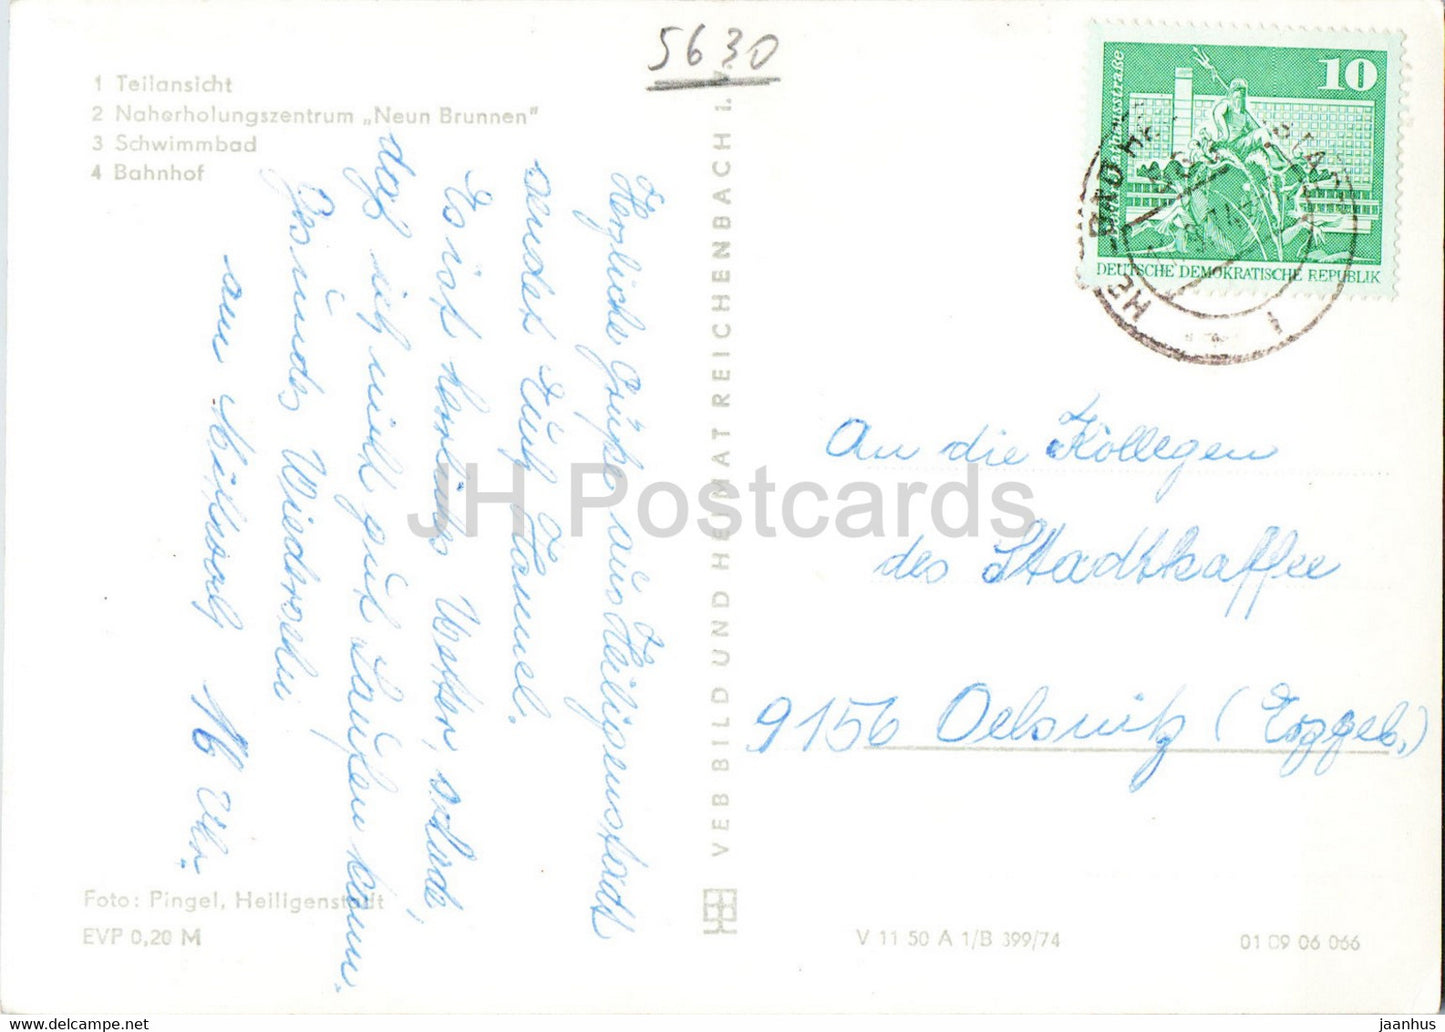 5630
1 Teilansicht
2 Naherholungszentrum „Neun Brunnen“
3 Schwimmbad
4 Bahnhof
Herzliche Grüße aus Heiligenstadt
sendet Euch
Es ist herrliches Wetter, schade,
daß ich nicht gut Laufen kann.
Gesundes Wiedersehn
am Mittwoch 16 Uhr.
Foto: Pingel, Heiligenstadt
EVP 0,20 M
VEB BILD UND HEIMAT REICHENBACH I. V.
10
DEUTSCHE DEMOKRATISCHE REPUBLIK
An die Kollegen
des Stadtkaffee
9156 Oelsnitz (Erzgeb.)
V 11 50 A 1/B 399/74
01 09 06 066
JH Postcards
jaanhus at www.delcampe.net